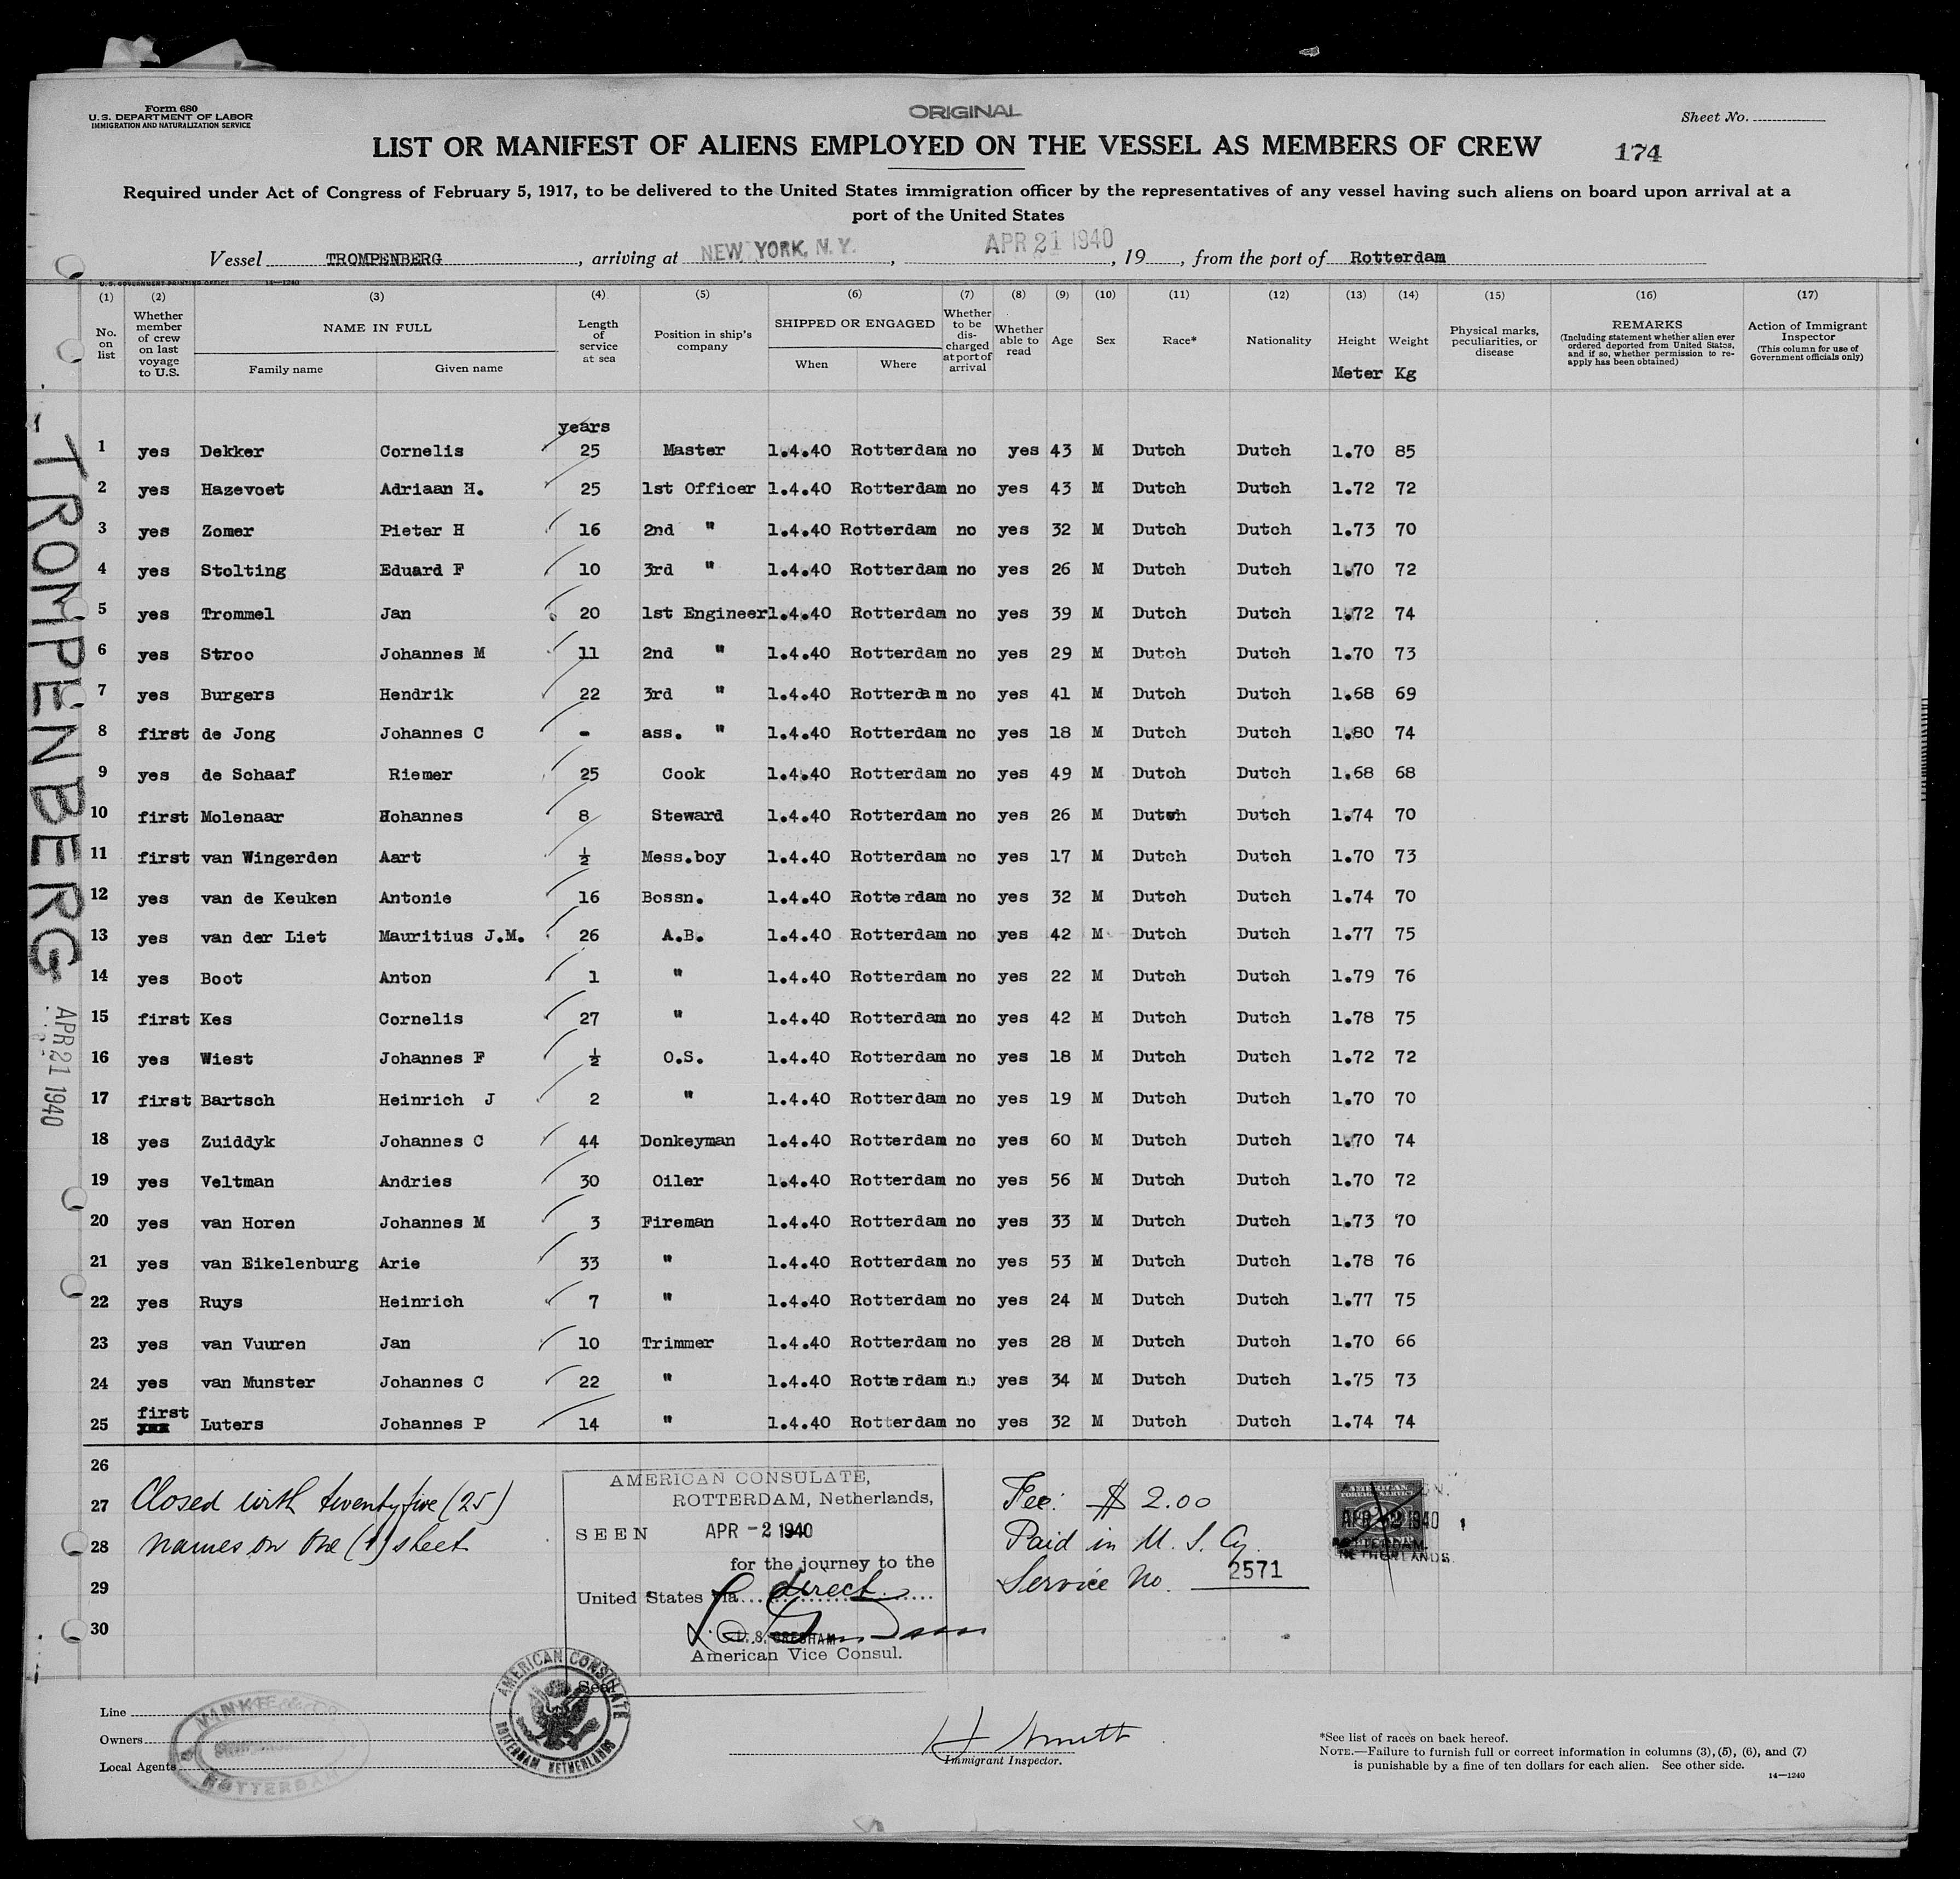 Form 680
U. S. DEPARTMENT OF LABOR
IMMIGRATION AND NATURALIZATION SERVICE
ORIGINAL
Sheet No.
LIST OR MANIFEST OF ALIENS EMPLOYED ON THE VESSEL AS MEMBERS OF CREW
174
Required under Act of Congress of February 5, 1917, to be delivered to the United States immigration officer by the representatives of any vessel having such aliens on board upon arrival at a
port of the United States
Vessel TROMPENBERG, arriving at NEW YORK, N. Y., APR 21 1940, 19, from the port of Rotterdam
U. S. GOVERNMENT PRINTING OFFICE 14—1240
(1) (2) (3) (4) (5) (6) (7) (8) (9) (10) (11) (12) (13) (14) (15) (16) (17)
No. on list
Whether member of crew on last voyage to U.S.
NAME IN FULL
Family name Given name
Length of service at sea
Position in ship's company
SHIPPED OR ENGAGED
When Where
Whether to be discharged at port of arrival
Whether able to read
Age
Sex
Race*
Nationality
Height
Meter
Weight
Kg
Physical marks, peculiarities, or disease
REMARKS
(Including statement whether alien ever ordered deported from United States, and if so, whether permission to re-apply has been obtained)
Action of Immigrant Inspector
(This column for use of Government officials only)
years
1 yes Dekker Cornelis 25 Master 1.4.40 Rotterdam no yes 43 M Dutch Dutch 1.70 85
2 yes Hazevoet Adriaan H. 25 1st Officer 1.4.40 Rotterdam no yes 43 M Dutch Dutch 1.72 72
3 yes Zomer Pieter H 16 2nd " 1.4.40 Rotterdam no yes 32 M Dutch Dutch 1.73 70
4 yes Stolting Eduard F 10 3rd " 1.4.40 Rotterdam no yes 26 M Dutch Dutch 1.70 72
5 yes Trommel Jan 20 1st Engineer 1.4.40 Rotterdam no yes 39 M Dutch Dutch 1.72 74
6 yes Stroo Johannes M 11 2nd " 1.4.40 Rotterdam no yes 29 M Dutch Dutch 1.70 73
7 yes Burgers Hendrik 22 3rd " 1.4.40 Rotterdam no yes 41 M Dutch Dutch 1.68 69
8 first de Jong Johannes C - ass. " 1.4.40 Rotterdam no yes 18 M Dutch Dutch 1.80 74
9 yes de Schaaf Riemer 25 Cook 1.4.40 Rotterdam no yes 49 M Dutch Dutch 1.68 68
10 first Molenaar Hohannes 8 Steward 1.4.40 Rotterdam no yes 26 M Dutch Dutch 1.74 70
11 first van Wingerden Aart ½ Mess.boy 1.4.40 Rotterdam no yes 17 M Dutch Dutch 1.70 73
12 yes van de Keuken Antonie 16 Bossn. 1.4.40 Rotterdam no yes 32 M Dutch Dutch 1.74 70
13 yes van der Liet Mauritius J.M. 26 A.B. 1.4.40 Rotterdam no yes 42 M Dutch Dutch 1.77 75
14 yes Boot Anton 1 " 1.4.40 Rotterdam no yes 22 M Dutch Dutch 1.79 76
15 first Kes Cornelis 27 " 1.4.40 Rotterdam no yes 42 M Dutch Dutch 1.78 75
16 yes Wiest Johannes F ½ O.S. 1.4.40 Rotterdam no yes 18 M Dutch Dutch 1.72 72
17 first Bartsch Heinrich J 2 " 1.4.40 Rotterdam no yes 19 M Dutch Dutch 1.70 70
18 yes Zuiddyk Johannes C 44 Donkeyman 1.4.40 Rotterdam no yes 60 M Dutch Dutch 1.70 74
19 yes Veltman Andries 30 Oiler 1.4.40 Rotterdam no yes 56 M Dutch Dutch 1.70 72
20 yes van Horen Johannes M 3 Fireman 1.4.40 Rotterdam no yes 33 M Dutch Dutch 1.73 70
21 yes van Eikelenburg Arie 33 " 1.4.40 Rotterdam no yes 53 M Dutch Dutch 1.78 76
22 yes Ruys Heinrich 7 " 1.4.40 Rotterdam no yes 24 M Dutch Dutch 1.77 75
23 yes van Vuuren Jan 10 Trimmer 1.4.40 Rotterdam no yes 28 M Dutch Dutch 1.70 66
24 yes van Munster Johannes C 22 " 1.4.40 Rotterdam no yes 34 M Dutch Dutch 1.75 73
25 first Luters Johannes P 14 " 1.4.40 Rotterdam no yes 32 M Dutch Dutch 1.74 74
26
27
28
29
30
Closed with twenty five (25)
names on one (1) sheet
AMERICAN CONSULATE,
ROTTERDAM, Netherlands,
SEEN APR -2 1940
for the journey to the
United States via direct
L. S. GRESHAM
American Vice Consul.
Seal
AMERICAN CONSULATE
ROTTERDAM NETHERLANDS
Fee: $ 2.00
Paid in U. S. Cy.
Service No. 2571
AMERICAN
FOREIGN SERVICE
APR -2 1940
ROTTERDAM.
NETHERLANDS.
TROMPENBERG
APR 21 1940
Line
Owners
Local Agents
ROTTERDAM
H Smith
Immigrant Inspector.
*See list of races on back hereof.
NOTE.—Failure to furnish full or correct information in columns (3), (5), (6), and (7)
is punishable by a fine of ten dollars for each alien. See other side.
14—1240